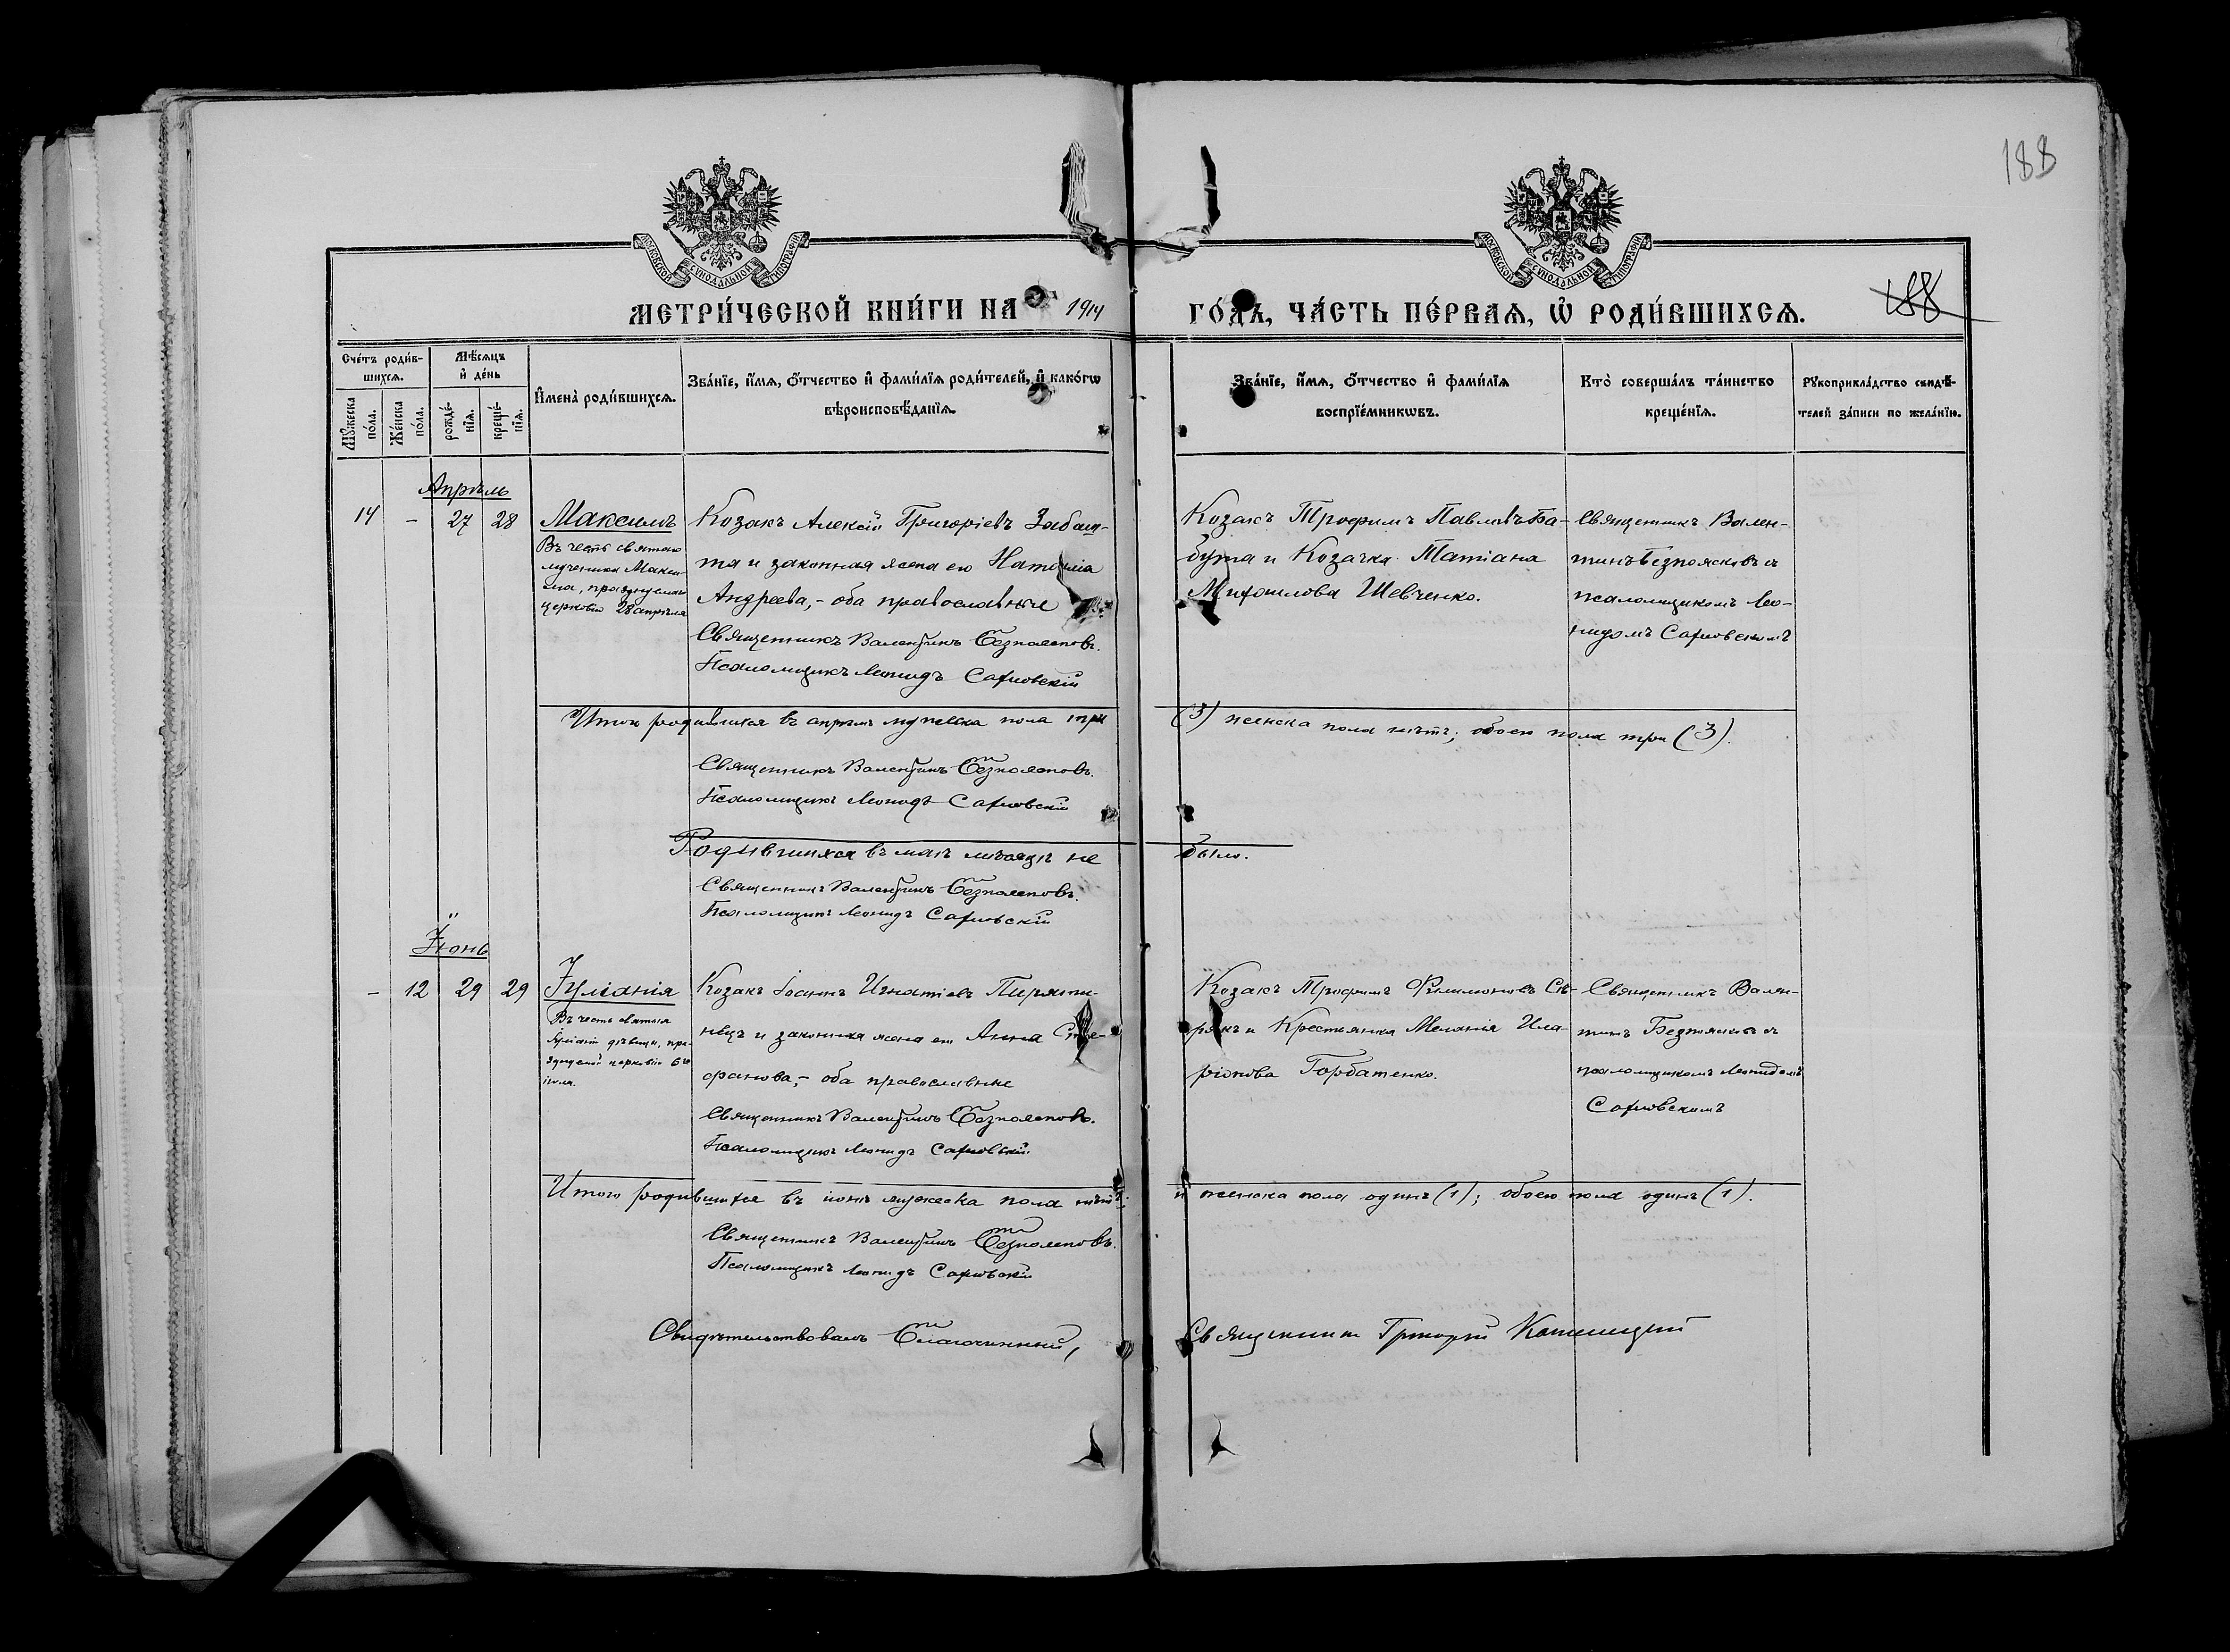 188
МОСКОВСКОЙ СѴНОДАЛЬНОЙ ТИПОГРАФІИ
МОСКОВСКОЙ СѴНОДАЛЬНОЙ ТИПОГРАФІИ
МЕТРИ́ЧЕСКОЙ КНИ́ГИ НА 1914 ГО́ДЪ, ЧА́СТЬ ПЕ́РВАѦ, Ѡ҆ РОДИ́ВШИХСѦ.
188
Сче́тъ роди́в-
шихсѧ.
Мꙋ́жеска
по́ла.
Же́нска
по́ла.
Мѣ́сѧцъ
и҆ де́нь
рожде́-
нїѧ.
креще́-
нїѧ.
И҆мена̀ роди́вшихсѧ.
Зва́нїе, и҆́мѧ, ѻ҆́тчество и҆ фами́лїѧ роди́телей, и҆ како́гѡ
вѣроисповѣ́данїѧ.
Зва́нїе, и҆́мѧ, ѻ҆́тчество и҆ фами́лїѧ
воспрїе́мникѡвъ.
Кто̀ соверша́лъ та́инство
креще́нїѧ.
Рꙋкоприкла́дство свидѣ́-
телей за́писи по жела́нїю.
Апрѣль
14 - 27 28
Максимъ
Въ честь святаго
мученика Макси-
ма, празднуемаго
церковію 28 апрѣля
Козакъ Алексій Григоріевъ Забаш-
та и законная жена его Наталія
Андреева,- оба православные
Священникъ Валентинъ Безпоясковъ.
Псаломщикъ Леонидъ Сахновскій
Козакъ Трофимъ Павловъ Ба-
бута и Козачка Татіана
Митошлова Шевченко.
Священникъ Вален-
тинъ Безпоясковъ съ
псаломщикомъ Лео-
нидомъ Сахновскимъ
Итого родившихся въ апрѣлѣ мужеска пола три (3) женска пола нѣтъ; обоего пола три (3).
Священникъ Валентинъ Безпоясковъ.
Псаломщикъ Леонидъ Сахновскій
Родившихся въ маѣ мѣсяцѣ не было.
Священникъ Валентинъ Безпоясковъ.
Псаломщикъ Леонидъ Сахновскій
Іюнь
- 12 29 29
Іуліанія
Въ честь святыя
Іуліаніи дѣвицы, пра-
зднуемой церковію 6го
іюля.
Козакъ Іоаннъ Игнатіевъ Пирятин-
нецъ и законная жена его Анна Сте-
фанова,- оба православные
Священникъ Валентинъ Безпоясковъ.
Псаломщикъ Леонидъ Сахновскій.
Козакъ Трофимъ Филимоновъ Сѣ-
рякъ и Крестьянка Меланія Ила-
ріонова Горбатенко.
Священникъ Вален-
тинъ Безпоясковъ съ
псаломщикомъ Леонидомъ
Сахновскимъ
Итого родившихся въ іюнѣ мужеска пола нѣтъ; и женска пола одинъ (1); обоего пола одинъ (1).
Священникъ Валентинъ Безпоясковъ.
Псаломщикъ Леонидъ Сахновскій
Свидѣтельствовалъ Благочинный, Священникъ Григорій